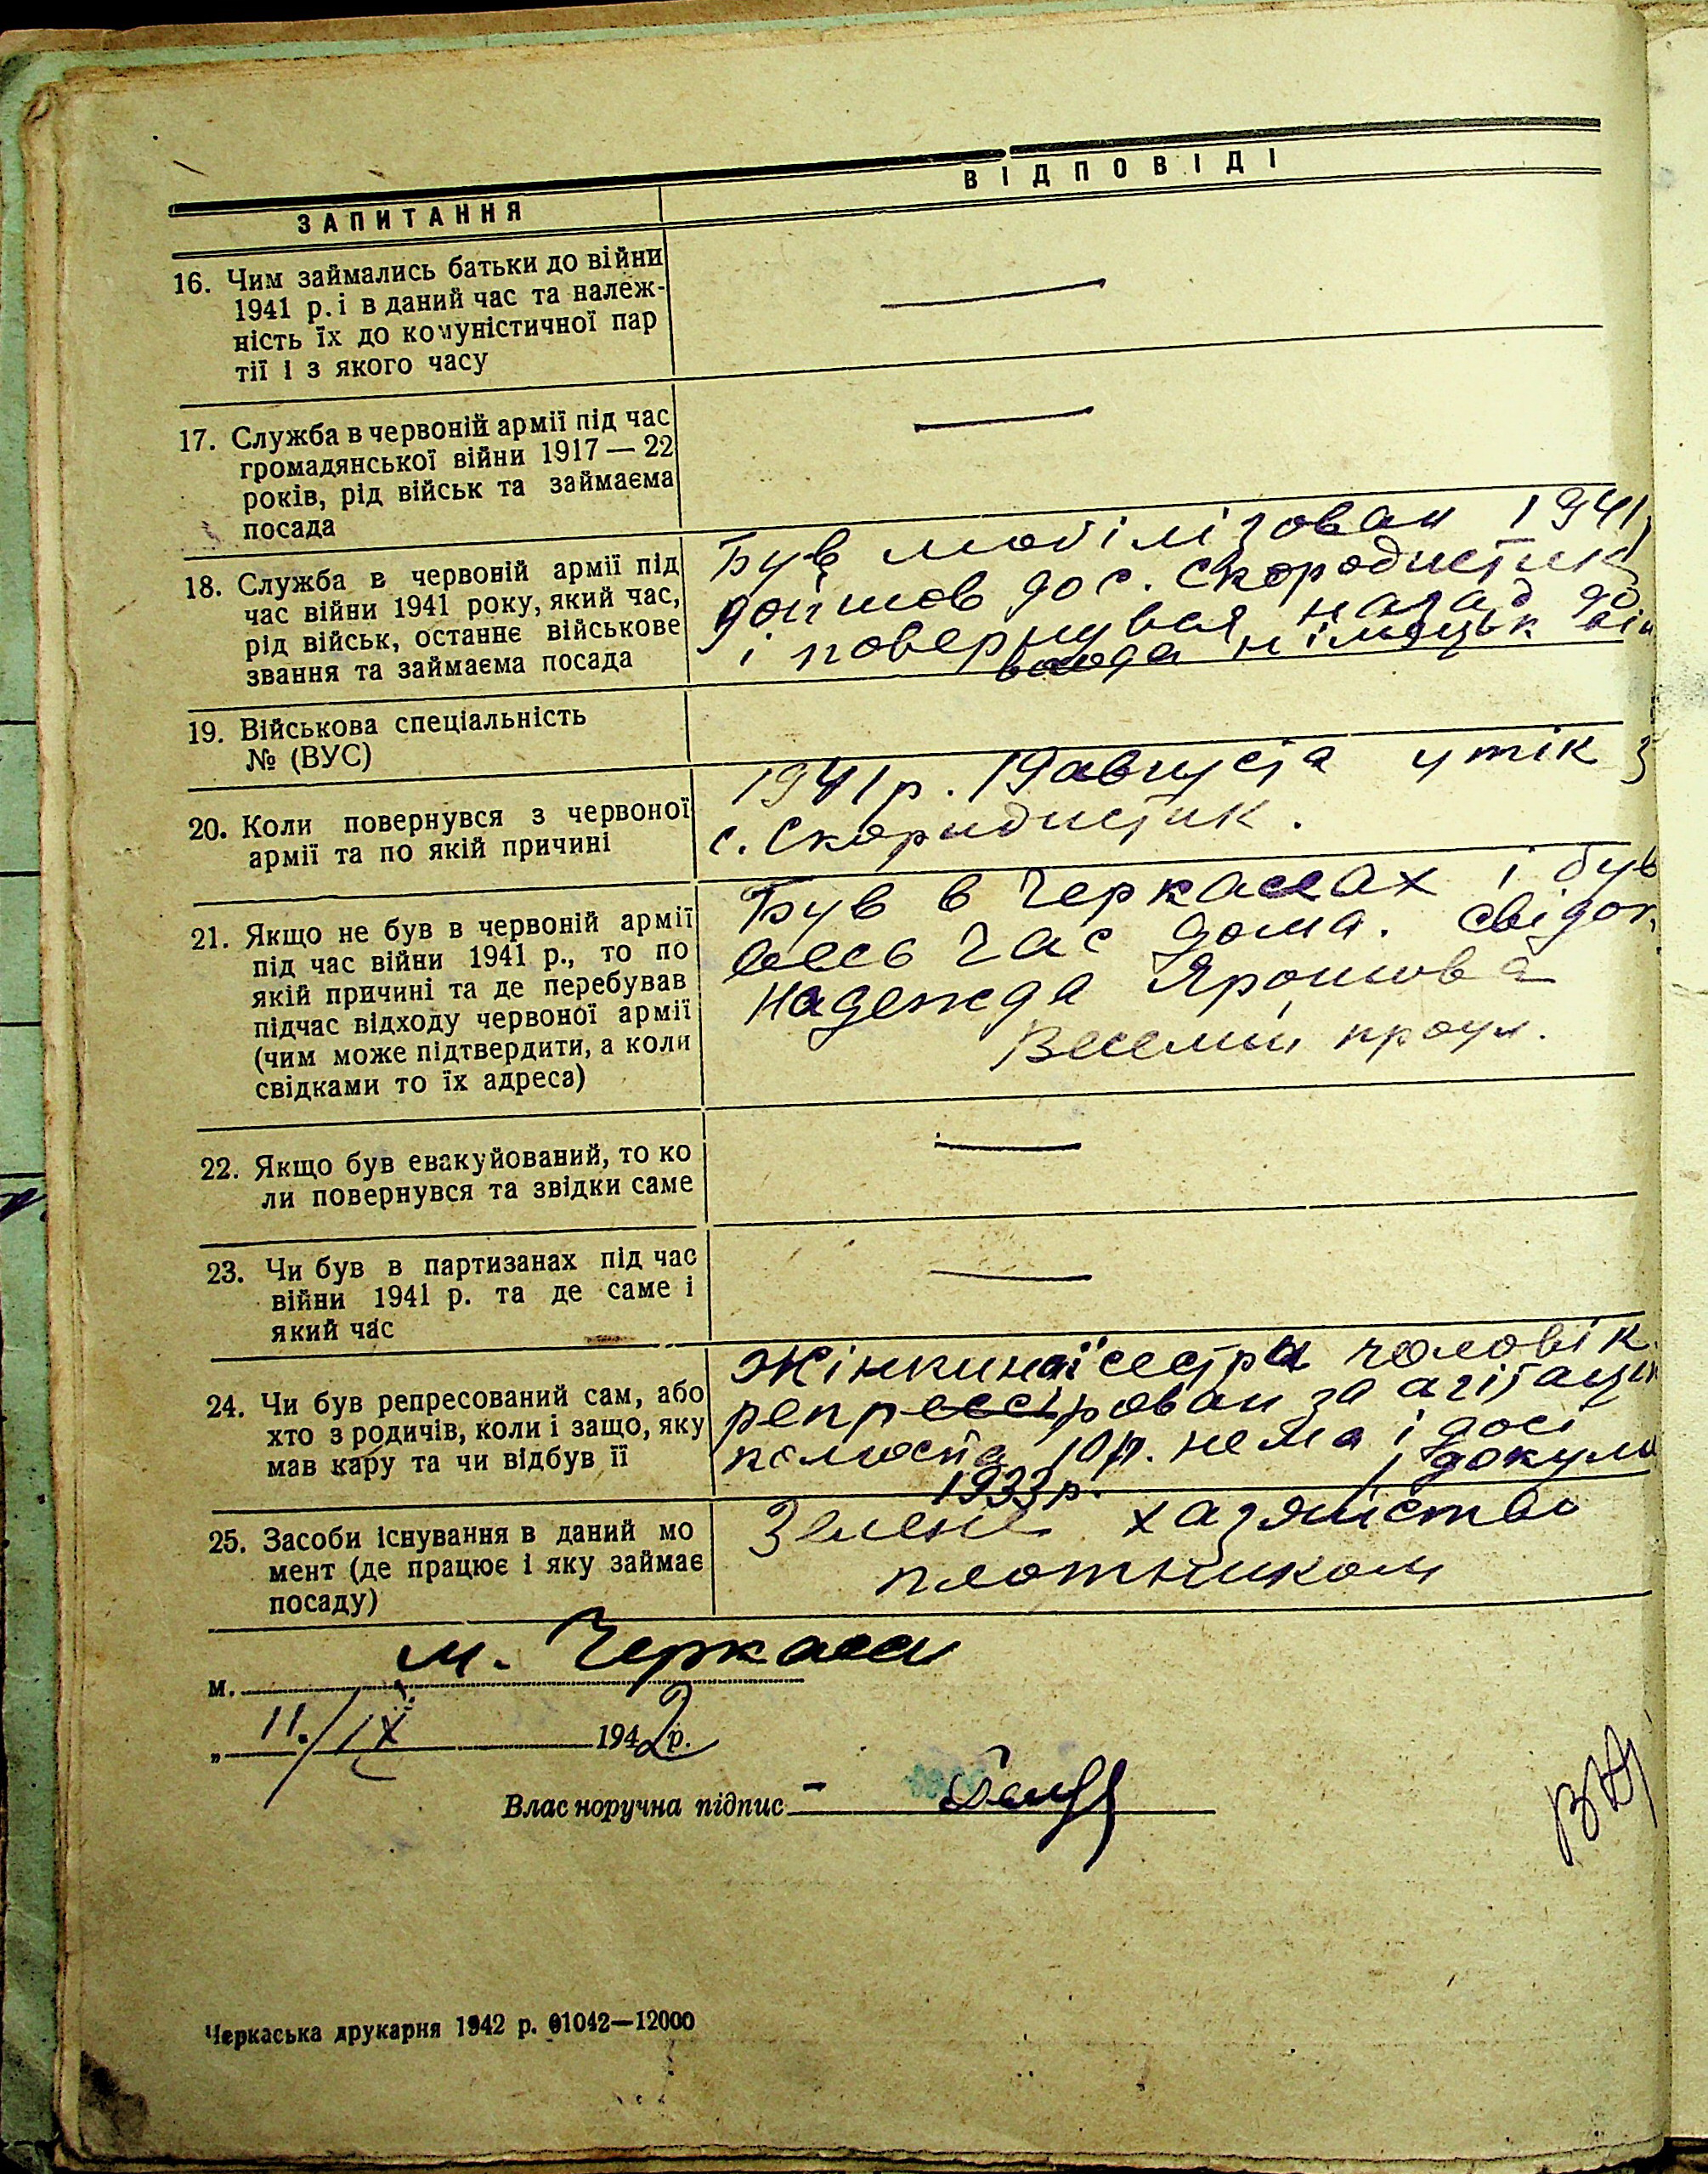 ЗАПИТАННЯ
ВІДПОВІДІ
16. Чим займались батьки до війни
1941 р. і в даний час та належ-
ність їх до комуністичної пар
тії і з якого часу
17. Служба в червоній армії під час
громадянської війни 1917—22
років, рід військ та займаєма
посада
18. Служба в червоній армії під
час війни 1941 року, який час,
рід військ, останнє військове
звання та займаєма посада
Був мобілізован 1941
дойшов до с. Скородистик
і повернувся назад до
німецьк
19. Військова спеціальність
№ (ВУС)
20. Коли повернувся з червоної
армії та по якій причині
1941 р. 19 августа утік з
с. Скородистик.
21. Якщо не був в червоній армії
під час війни 1941 р., то по
якій причині та де перебував
підчас відходу червоної армії
(чим може підтвердити, а коли
свідками то їх адреса)
Був в Черкасах і був
весь час дома. свідок
Надежда Ярошова
проул.
22. Якщо був евакуйований, то ко
ли повернувся та звідки саме
23. Чи був в партизанах під час
війни 1941 р. та де саме і
який час
24. Чи був репресований сам, або
хто з родичів, коли і защо, яку
мав кару та чи відбув її
Жінкиної сестри чоловік
репресірован за агітацію
10 р. нема і досі
1933 р.
25. Засоби існування в даний мо
мент (де працює і яку займає
посаду)
Зелене хазяйство
плотником
м. м. Черкаси
„ 11./IX 1942 р.
Власноручна підпис
Черкаська друкарня 1942 р. 01042—12000